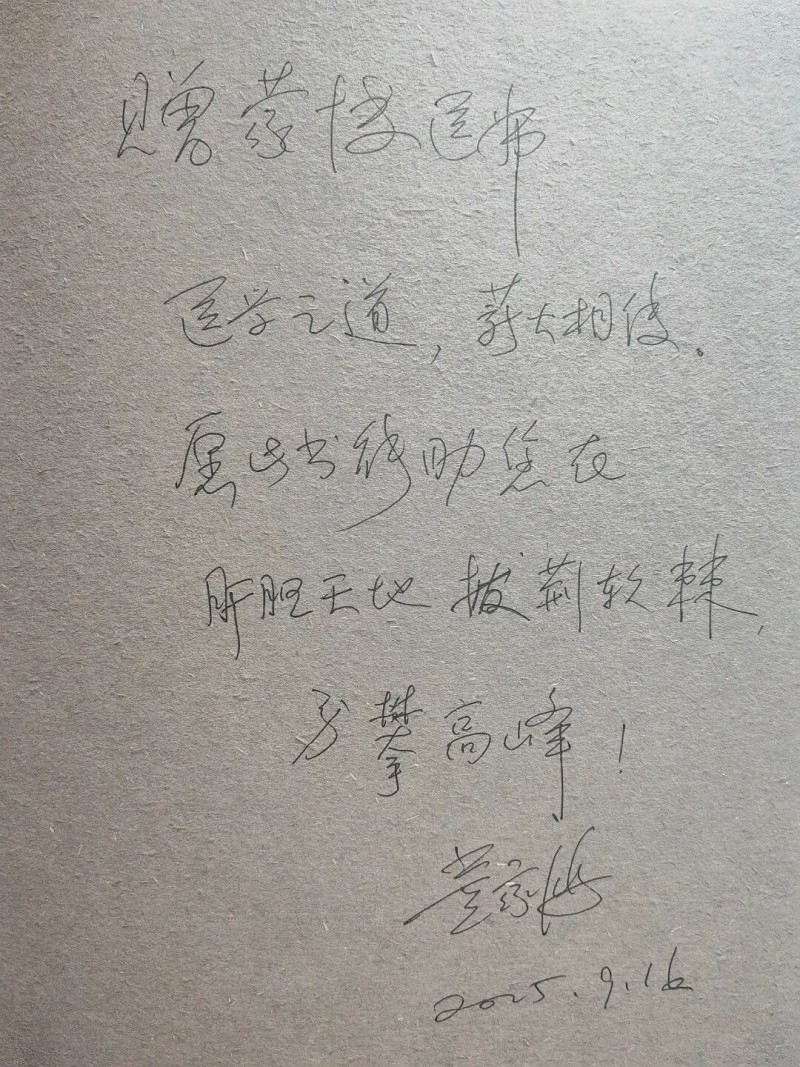 赠蒙博医师
医学之道，薪火相传。
愿此书能助您在
肝胆天地 披荆斩棘，
勇攀高峰！
董家鸿
2025.9.16